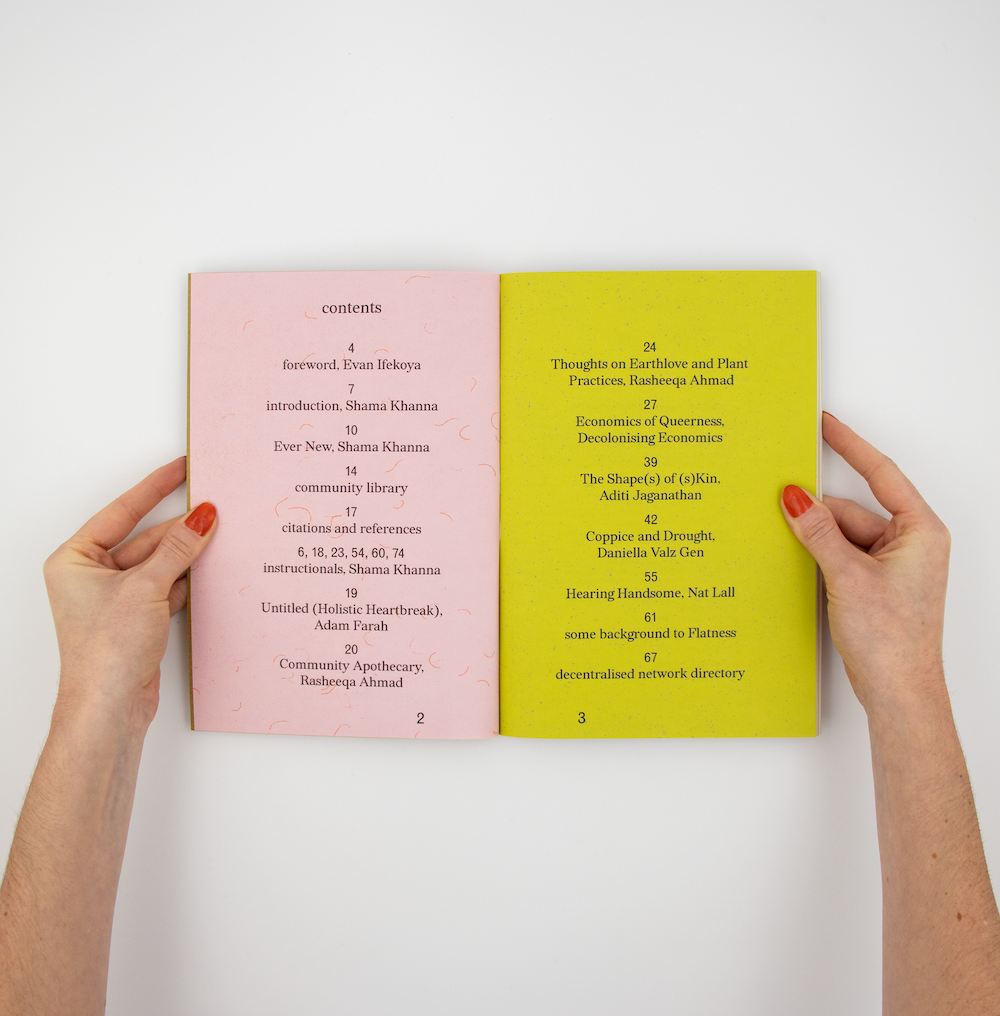 contents
4
foreword, Evan Ifekoya
7
introduction, Shama Khanna
10
Ever New, Shama Khanna
14
community library
17
citations and references
6, 18, 23, 54, 60, 74
instructionals, Shama Khanna
19
Untitled (Holistic Heartbreak),
Adam Farah
20
Community Apothecary,
Rasheeqa Ahmad
2
24
Thoughts on Earthlove and Plant
Practices, Rasheeqa Ahmad
27
Economics of Queerness,
Decolonising Economics
39
The Shape(s) of (s)Kin,
Aditi Jaganathan
42
Coppice and Drought,
Daniella Valz Gen
55
Hearing Handsome, Nat Lall
61
some background to Flatness
67
decentralised network directory
3